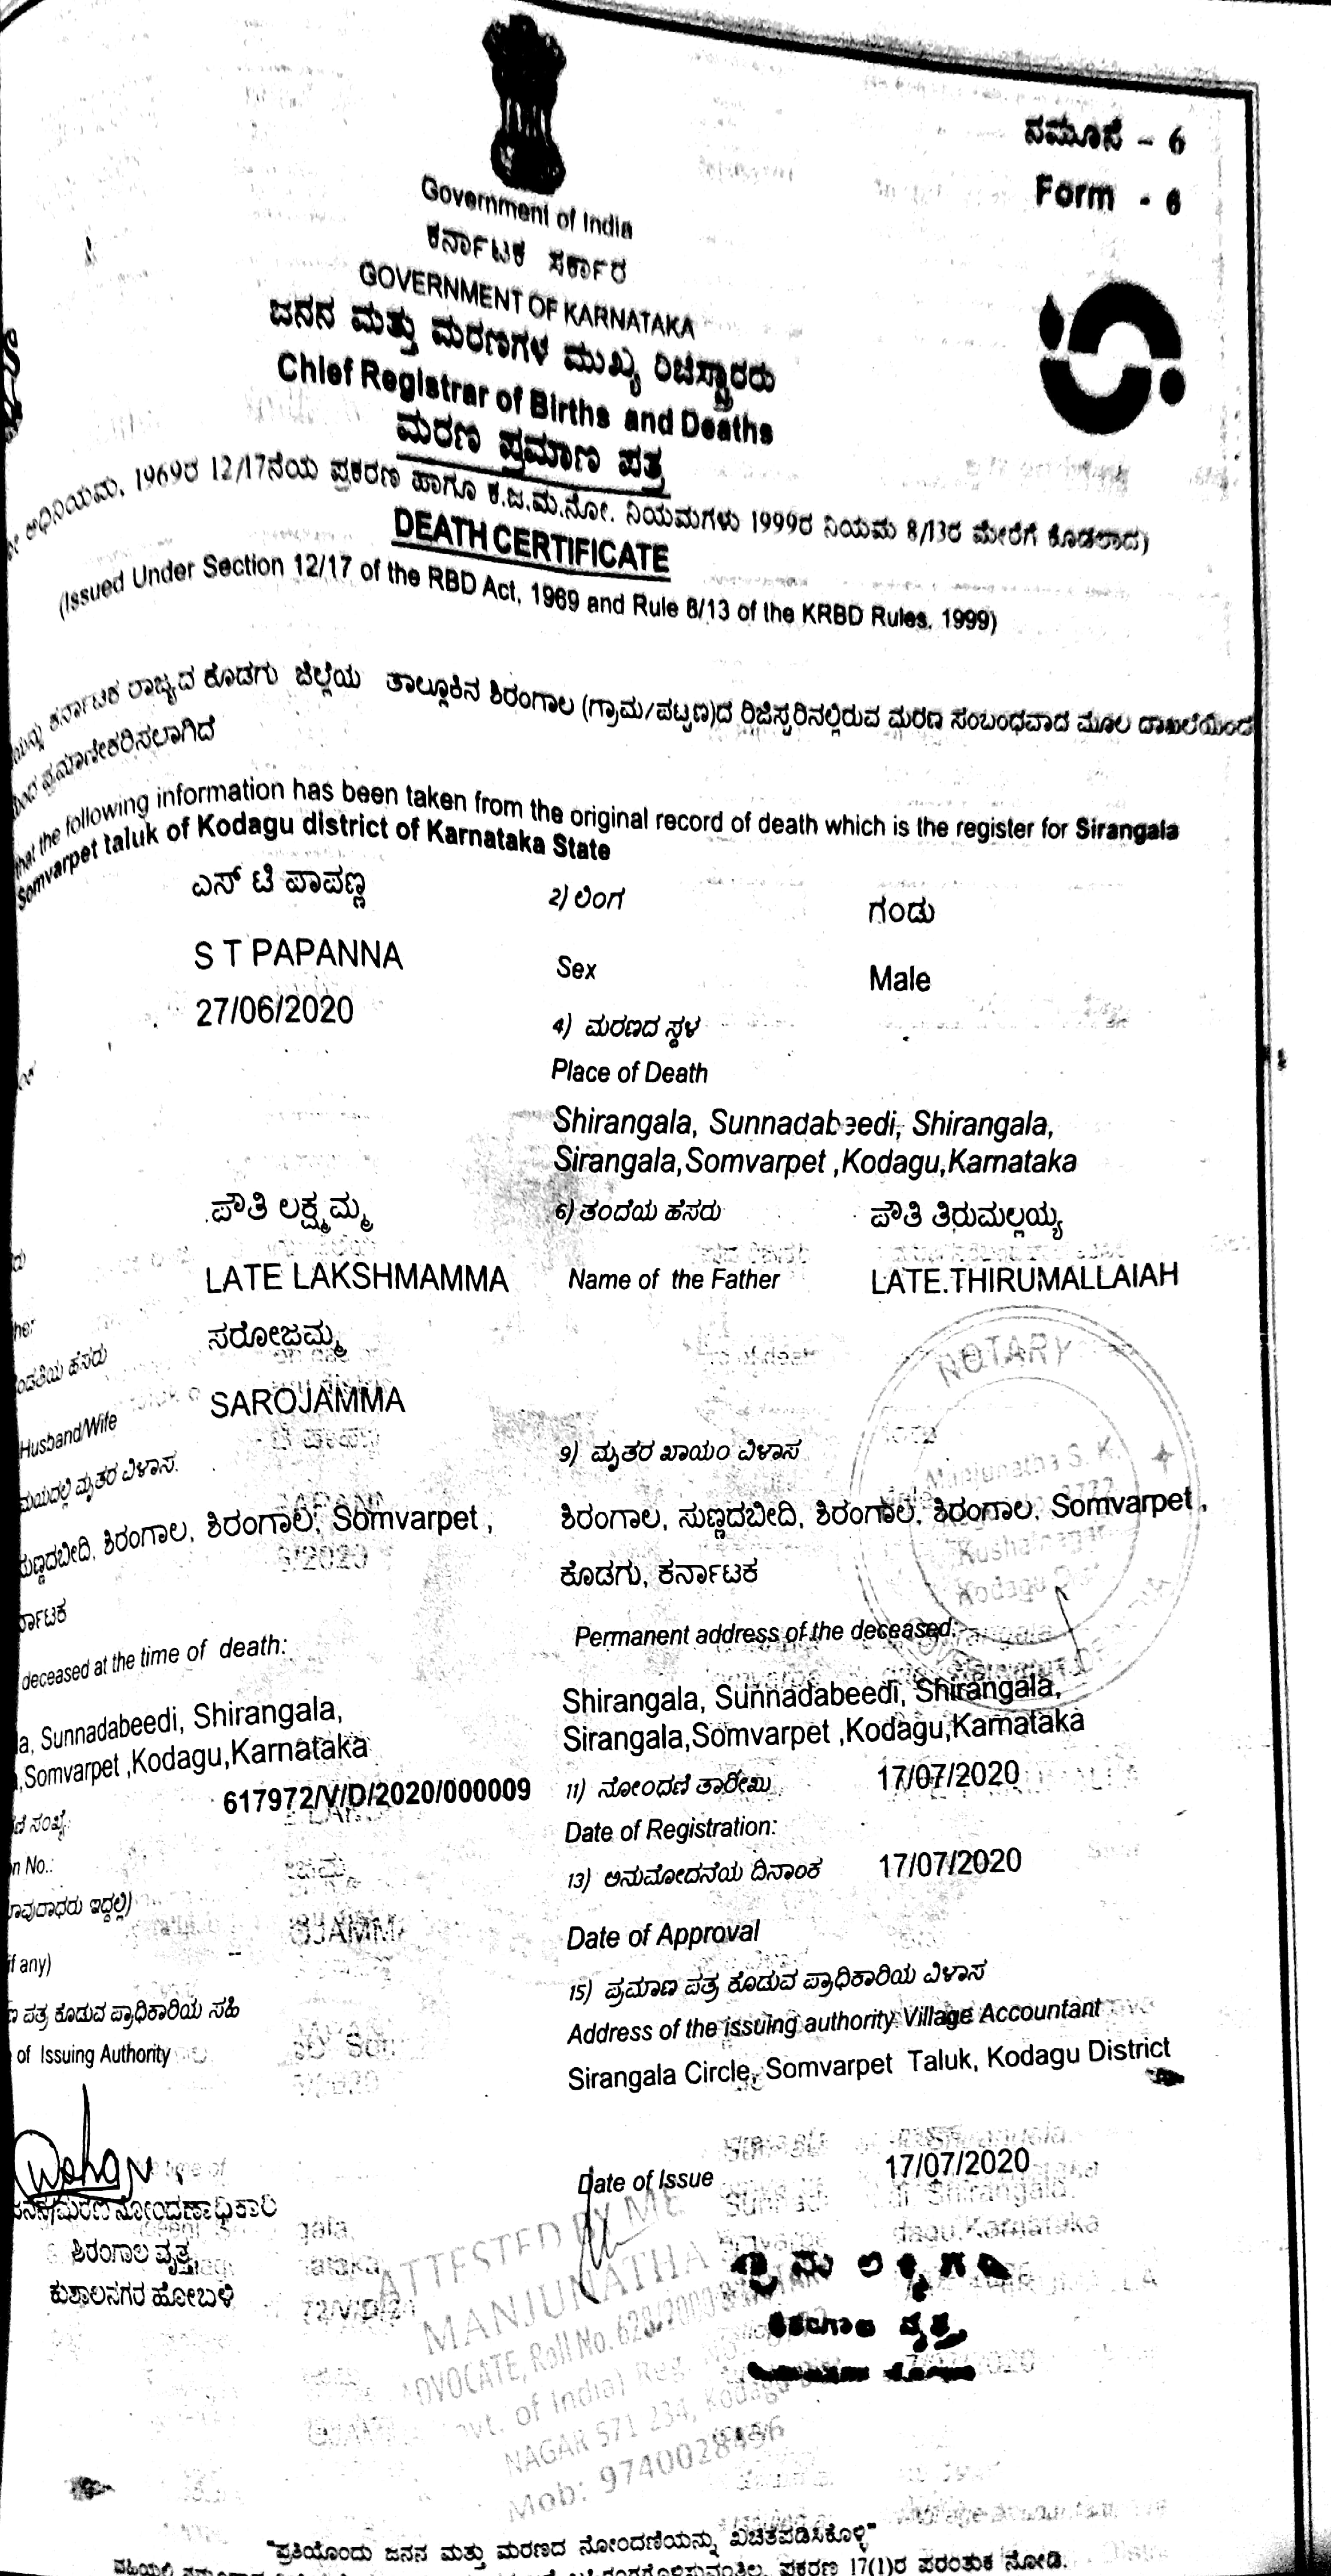 ನಮೂನೆ - 6
Form - 6
Government of India
ಕರ್ನಾಟಕ ಸರ್ಕಾರ
GOVERNMENT OF KARNATAKA
ಜನನ ಮತ್ತು ಮರಣಗಳ ಮುಖ್ಯ ರಿಜಿಸ್ಟ್ರಾರರು
Chief Registrar of Births and Deaths
ಮರಣ ಪ್ರಮಾಣ ಪತ್ರ
ಅಧಿನಿಯಮ, 1969ರ 12/17ನೆಯ ಪ್ರಕರಣ ಹಾಗೂ ಕ.ಜ.ಮ.ನೋ. ನಿಯಮಗಳು 1999ರ ನಿಯಮ 8/13ರ ಮೇರೆಗೆ ಕೊಡಲಾದ)
DEATH CERTIFICATE
(Issued Under Section 12/17 of the RBD Act, 1969 and Rule 8/13 of the KRBD Rules, 1999)
ಕರ್ನಾಟಕ ರಾಜ್ಯದ ಕೊಡಗು ಜಿಲ್ಲೆಯ ತಾಲ್ಲೂಕಿನ ಶಿರಂಗಾಲ (ಗ್ರಾಮ/ಪಟ್ಟಣ)ದ ರಿಜಿಸ್ಟರಿನಲ್ಲಿರುವ ಮರಣ ಸಂಬಂಧವಾದ ಮೂಲ ದಾಖಲೆಯಿಂದ
ಪ್ರಮಾಣೀಕರಿಸಲಾಗಿದೆ
that the following information has been taken from the original record of death which is the register for Sirangala
Somvarpet taluk of Kodagu district of Karnataka State
ಎಸ್ ಟಿ ಪಾಪಣ್ಣ 2) ಲಿಂಗ ಗಂಡು
S T PAPANNA Sex Male
27/06/2020 4) ಮರಣದ ಸ್ಥಳ
Place of Death
Shirangala, Sunnadabeedi, Shirangala,
Sirangala,Somvarpet ,Kodagu,Karnataka
ಪೌತಿ ಲಕ್ಷ್ಮಮ್ಮ 6) ತಂದೆಯ ಹೆಸರು ಪೌತಿ ತಿರುಮಲ್ಲಯ್ಯ
LATE LAKSHMAMMA Name of the Father LATE.THIRUMALLAIAH
ಸರೋಜಮ್ಮ
ಹೆಸರು
SAROJAMMA
Husband/Wife
9) ಮೃತರ ಖಾಯಂ ವಿಳಾಸ
ಮೃತರ ವಿಳಾಸ.
ಸುಣ್ಣದಬೀದಿ, ಶಿರಂಗಾಲ, ಶಿರಂಗಾಲ, Somvarpet ,
ಶಿರಂಗಾಲ, ಸುಣ್ಣದಬೀದಿ, ಶಿರಂಗಾಲ, ಶಿರಂಗಾಲ, Somvarpet ,
ಕೊಡಗು, ಕರ್ನಾಟಕ
deceased at the time of death:
Permanent address of the deceased:
a, Sunnadabeedi, Shirangala,
,Somvarpet ,Kodagu,Karnataka
Shirangala, Sunnadabeedi, Shirangala,
Sirangala,Somvarpet ,Kodagu,Karnataka
617972/V/D/2020/000009 11) ನೋಂದಣಿ ತಾರೀಖು 17/07/2020
ಸಂಖ್ಯೆ:
Date of Registration:
n No.:
13) ಅನುಮೋದನೆಯ ದಿನಾಂಕ 17/07/2020
ಇದ್ದಲ್ಲಿ)
Date of Approval
if any)
15) ಪ್ರಮಾಣ ಪತ್ರ ಕೊಡುವ ಪ್ರಾಧಿಕಾರಿಯ ವಿಳಾಸ
ಪತ್ರ ಕೊಡುವ ಪ್ರಾಧಿಕಾರಿಯ ಸಹಿ
Address of the issuing authority Village Accountant
of Issuing Authority
Sirangala Circle, Somvarpet Taluk, Kodagu District
Date of Issue 17/07/2020
ಜನನ/ಮರಣ ನೋಂದಣಾಧಿಕಾರಿ
ಶಿರಂಗಾಲ ವೃತ್ತ
ಕುಶಾಲನಗರ ಹೋಬಳಿ
ಗ್ರಾಮ ಲೆಕ್ಕಿಗರು
ಶಿರಂಗಾಲ ವೃತ್ತ
NOTARY
Manjunatha S. K.
Kushalnagar
Kodagu
ATTESTED BY ME
MANJUNATHA
ADVOCATE, Roll No. 628/2000
Govt. of India)
NAGAR 571 234, Kodagu
Mob: 9740028496
"ಪ್ರತಿಯೊಂದು ಜನನ ಮತ್ತು ಮರಣದ ನೋಂದಣಿಯನ್ನು ಖಚಿತಪಡಿಸಿಕೊಳ್ಳಿ"
ಪ್ರಕರಣ 17(1)ರ ಪರಂತುಕ ನೋಡಿ.